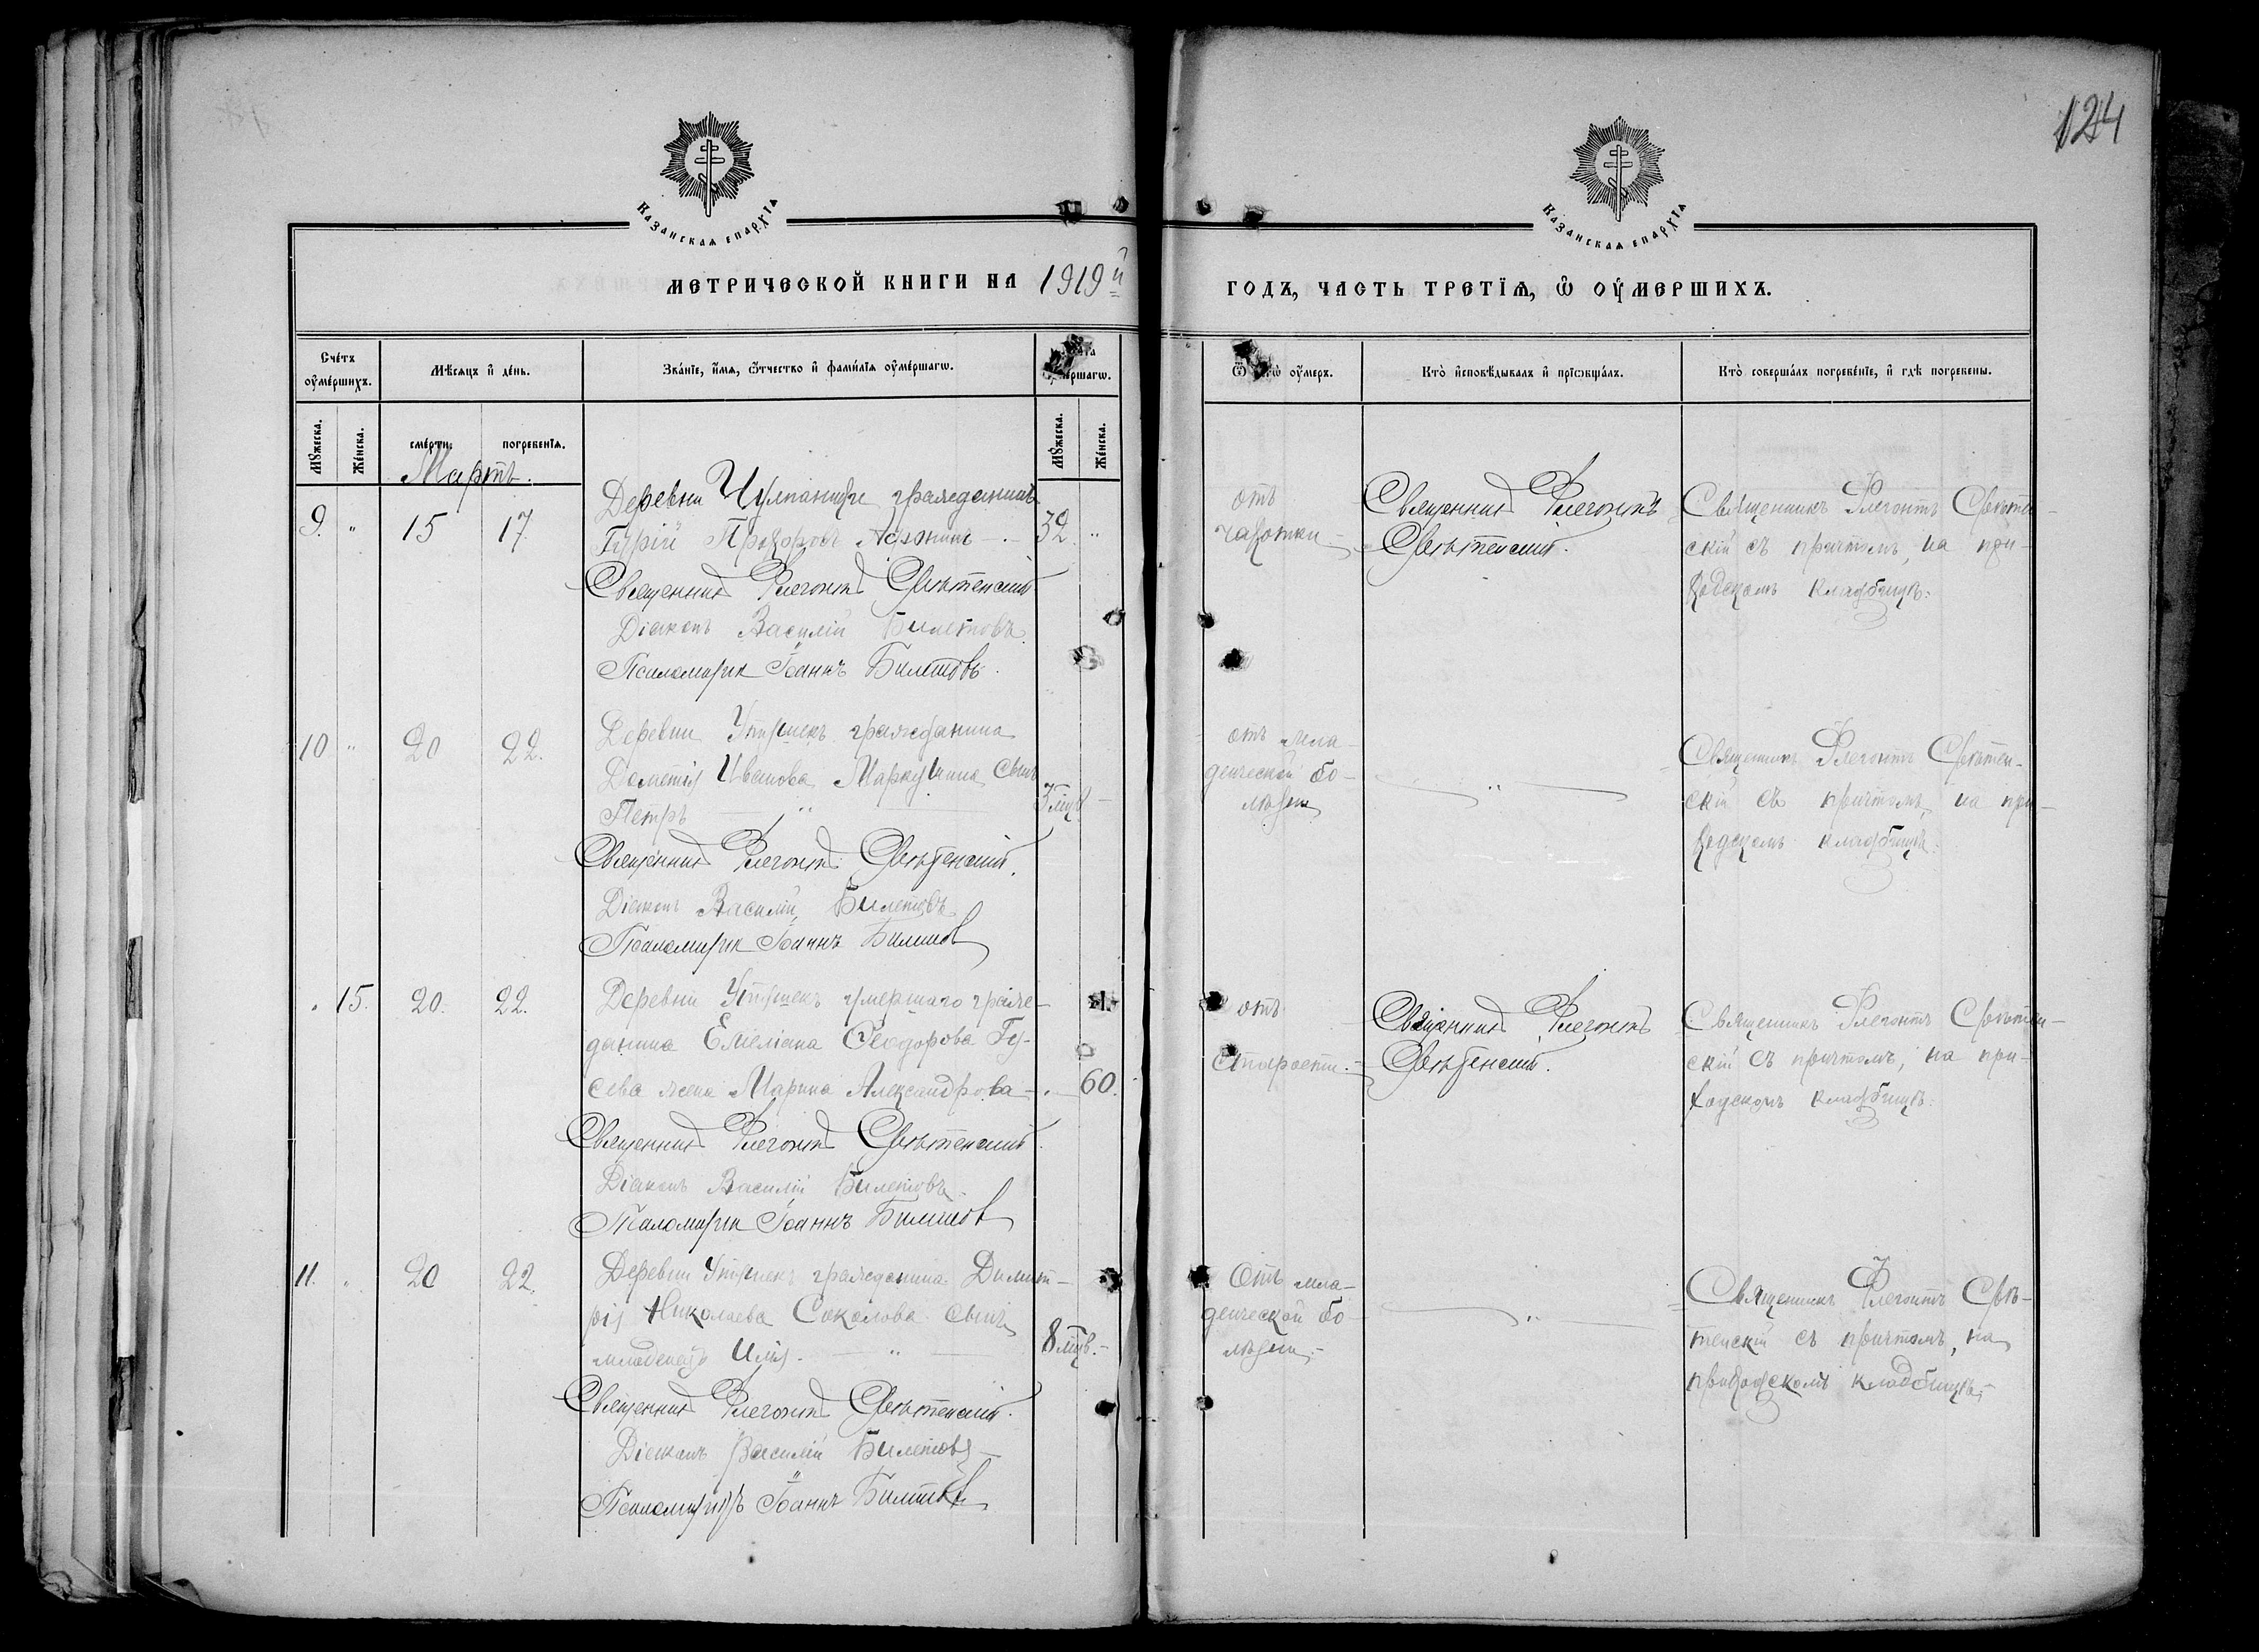 124
Казанская епархїѧ
Казанская епархїѧ
МЕТРИЧЕСКОЙ КНИГИ НА 1919й
ГОДЪ, ЧАСТЬ ТРЕТЇѦ, Ѡ ОУМЕРШИХЪ.
Счетъ оумершихъ.
Мѣсяцъ и день.
Званїе, имя, отчество и фамилїя оумершагѡ.
оумеръ.
Кто исповѣдывалъ и прїобщалъ.
Кто совершалъ погребенїе, и гдѣ погребены.
Мужеска.
Женска.
смерти.
погребенїя.
Мужеска.
Женска.
Мартъ.
9. " 15 17.
Деревни гражданинъ
Гурій Прохоровъ 32. "
Священникъ Флегонтъ Срѣтенскій
Діаконъ Василій Билетовъ
Псаломщик Іоаннъ Билетовъ.
отъ
чахотки
Священникъ Флегонтъ
Срѣтенскій.
Священникъ Флегонтъ Срѣтен-
скій съ причтомъ, на при-
ходскомъ кладбищѣ.
10 " 20 22.
Деревни гражданина
Дометія Иванова Маркушина сынъ
Петръ " мцв
Священникъ Флегонтъ Срѣтенскій.
Діаконъ Василій Билетовъ
Псаломщик Іоаннъ Билетов
отъ мла-
денческой бо-
лѣзни
"
Священникъ Флегонтъ Срѣтен-
скій съ причтомъ, на при-
ходскомъ кладбищѣ.
" 15. 20. 22.
Деревни умершаго граж-
данина Емеліана Ѳеодорова Гу-
сева жена Марина Александрова 60.
Священникъ Флегонтъ Срѣтенскій.
Діаконъ Василій Билетовъ
Псаломщик Іоаннъ Билетов
отъ
старости.
Священникъ Флегонтъ
Срѣтенскій.
Священникъ Флегонтъ Срѣтен-
скій съ причтомъ, на при-
ходскомъ кладбищѣ.
11. " 20 22.
Деревни гражданина Димит-
рія Николаева Соколова сынъ
младенецъ Илія. " 8 мцв.
Священникъ Флегонтъ Срѣтенскій.
Діаконъ Василій Билетовъ
Псаломщикъ Іоаннъ Билетов
Отъ мла-
денческой бо-
лѣзни.
"
Священникъ Флегонтъ Срѣ-
тенскій съ причтомъ, на
приходскомъ кладбищѣ.